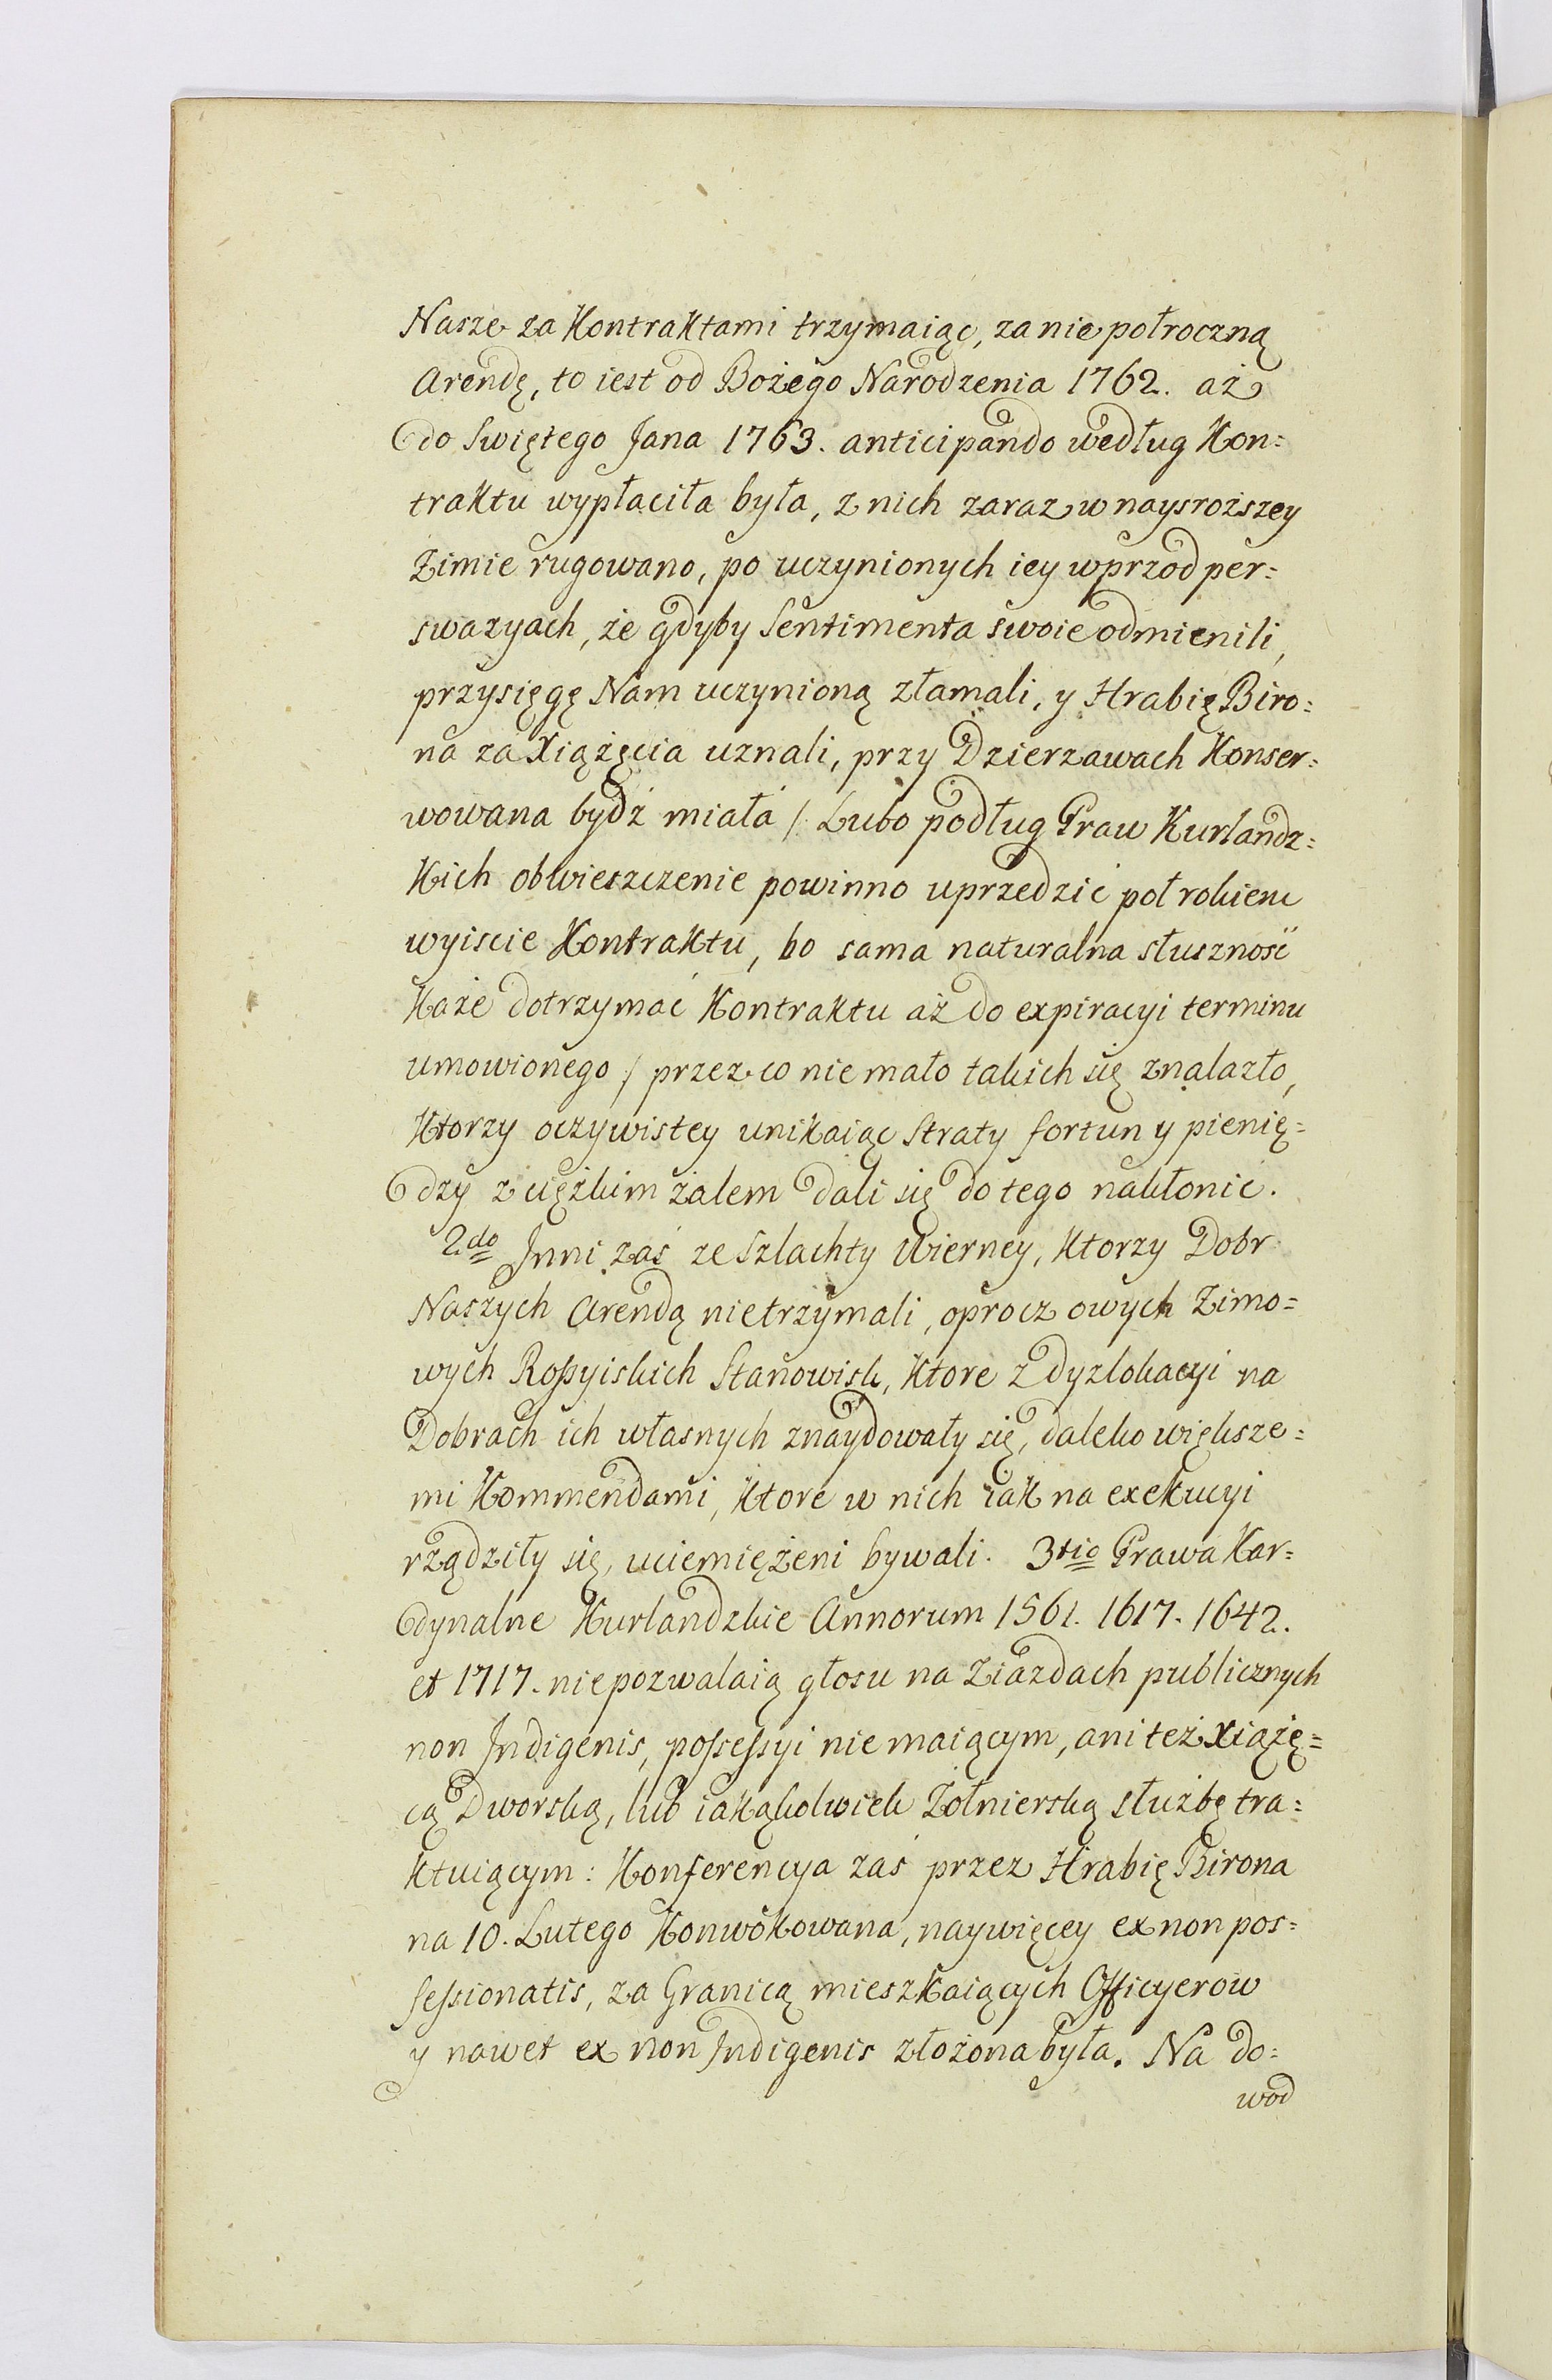 Nasze za Kontraktami trzymaiąc, za nie połroczną
Arendę, to iest od Bożego Narodzenia 1762. aż
do Swiętego Jana 1763. anticipando według Kon=
traktu wypłaciła była, z nich zaraz w naysroższey
Zimie rugowano, po uczynionych iey wprzod per=
swazyach, że gdyby Sentimenta swoie odmienili,
przysięgę Nam uczynioną złamali, y Hrabię Biro=
na za Xiążęcia uznali, przy Dzierzawach Konser=
wowana bydź miała /: Lubo podług Praw Kurlandz=
kich obwieszczenie powinno uprzedzić poł rokiem
wyiscie Kontraktu, bo sama naturalna słuszność
każe dotrzymać Kontraktu aż do expiracyi terminu
umowionego :/ przez co nie mało takich się znalazło,
Ktorzy oczywistey unikaiąc Straty fortun y pienię=
dzy z ciężkim żalem dali się do tego nakłonić.
2do Inni zaś ze Szlachty Wierney, Ktorzy Dobr
Naszych Arendą nietrzymali, oprocz owych Zimo=
wych Rossyiskich Stanowisk, Ktore z dyzlokacyi na
Dobrach ich własnych znaydowały się, daleko większe=
mi Kommendami, Ktore w nich iak na exekucyi
rządziły się, uciemiężeni bywali. 3tio Prawa Kar=
dynalne Kurlandzkie Annorum 1561. 1617. 1642.
et 1717. niepozwalaią głosu na Ziazdach publicznych
non Indigenis, possessyi nie maiącym, ani też Xiążę=
cą Dworską, lub iakąkolwiek Żołnierską służbę tra=
ktuiącym: Konferencya zaś przez Hrabię Birona
na 10. Lutego Konwokowana, naywięcey ex non pos=
sessionatis, za Granicą mieszkaiących Officyerow
y nawet ex non Indigenis złożona była. Na do=
wod